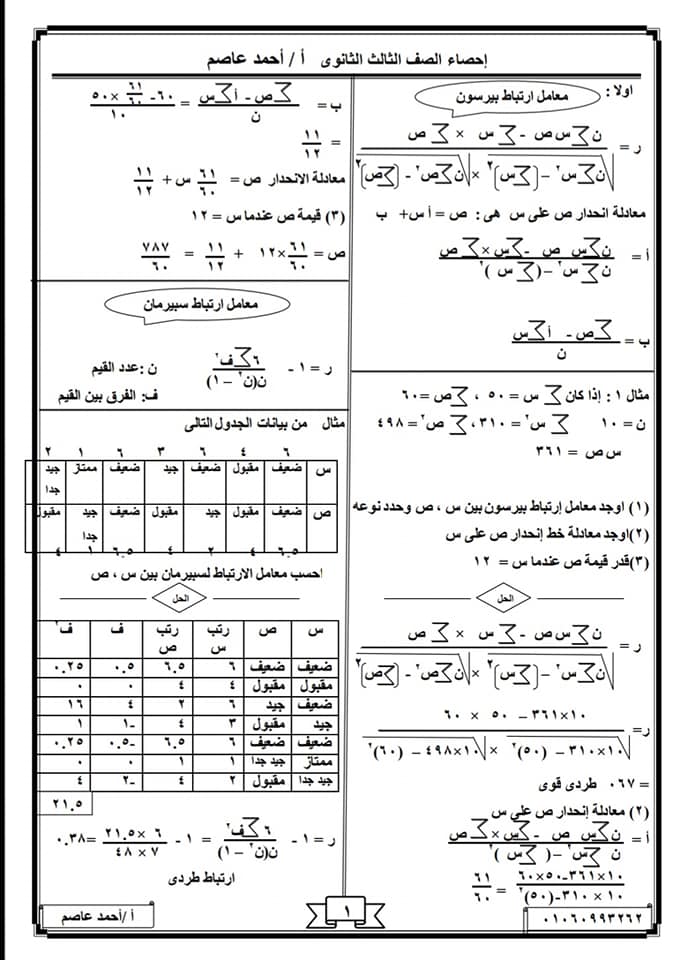 إحصاء الصف الثالث الثانوى أ / أحمد عاصم
اولا : معامل ارتباط بيرسون
ر = ن∑س ص - ∑س × ∑ص / √ن∑س٢ –(∑س)٢ × √ن∑ص٢ - (∑ص)٢
معادلة انحدار ص على س هى : ص = أ س+ ب
أ = ن∑س ص - ∑س×∑ص / ن∑س٢ –(∑س )٢
ب = ∑ص - أ∑س / ن
مثال ١ : إذا كان ∑ س = ٥٠ ، ∑ص = ٦٠
ن = ١٠ ∑ س٢ = ٣١٠ ، ∑ ص٢ = ٤٩٨
س ص = ٣٦١
(١) اوجد معامل إرتباط بيرسون بين س ، ص وحدد نوعه
(٢)اوجد معادلة خط إنحدار ص على س
(٣)قدر قيمة ص عندما س = ١٢
الحل
ر = ن∑س ص - ∑س × ∑ص / √ن∑س٢ –(∑س)٢ × √ن∑ص٢ - (∑ص)٢
ر= ١٠×٣٦١ – ٥٠ × ٦٠ / √١٠×٣١٠ – (٥٠)٢ × √١٠×٤٩٨ – (٦٠)٢
= ٠.٦٧ طردى قوى
(٢) معادلة إنحدار ص على س
أ = ن∑س ص - ∑س×∑ص / ن ∑س٢ –( ∑س )٢
١٠×٣٦١-٥٠×٦٠ / ١٠ × ٣١٠-(٥٠)٢ = ٦١ / ٦٠
ب = ∑ص - أ∑س / ن = ٦٠- ٦١/٦٠ ×٥٠ / ١٠
= ١١ / ١٢
معادلة الانحدار ص = ٦١/٦٠ س + ١١/١٢
(٣) قيمة ص عندما س = ١٢
ص = ٦١/٦٠ ×١٢ + ١١/١٢ = ٧٨٧/٦٠
معامل ارتباط سبيرمان
ر = ١ - ٦∑ف٢ / ن(ن٢ – ١) ن :عدد القيم
ف: الفرق بين القيم
مثال من بيانات الجدول التالى
٦ ٤ ٦ ٣ ٦ ١ ٢
س ضعيف مقبول ضعيف جيد ضعيف ممتاز جيد جدا
ص ضعيف مقبول جيد مقبول ضعيف جيد جدا مقبول
٦.٥ ٤ ٢ ٤ ٦.٥ ١ ٤
احسب معامل الارتباط لسبيرمان بين س ، ص
الحل
س ص رتب س رتب ص ف ف٢
ضعيف ضعيف ٦ ٦.٥ ٠.٥ ٠.٢٥
مقبول مقبول ٤ ٤ ٠ ٠
ضعيف جيد ٦ ٢ ٤ ١٦
جيد مقبول ٣ ٤ -١ ١
ضعيف ضعيف ٦ ٦.٥ -٠.٥ ٠.٢٥
ممتاز جيد جدا ١ ١ ٠ ٠
جيد جدا مقبول ٢ ٤ -٢ ٤
٢١.٥
ر = ١ - ٦∑ف٢ / ن(ن٢ – ١) = ١ - ٦ × ٢١.٥ / ٧ × ٤٨ = ٠.٣٨
ارتباط طردى
٠١٠٦٠٩٩٣٢٦٢
١
أ /أحمد عاصم